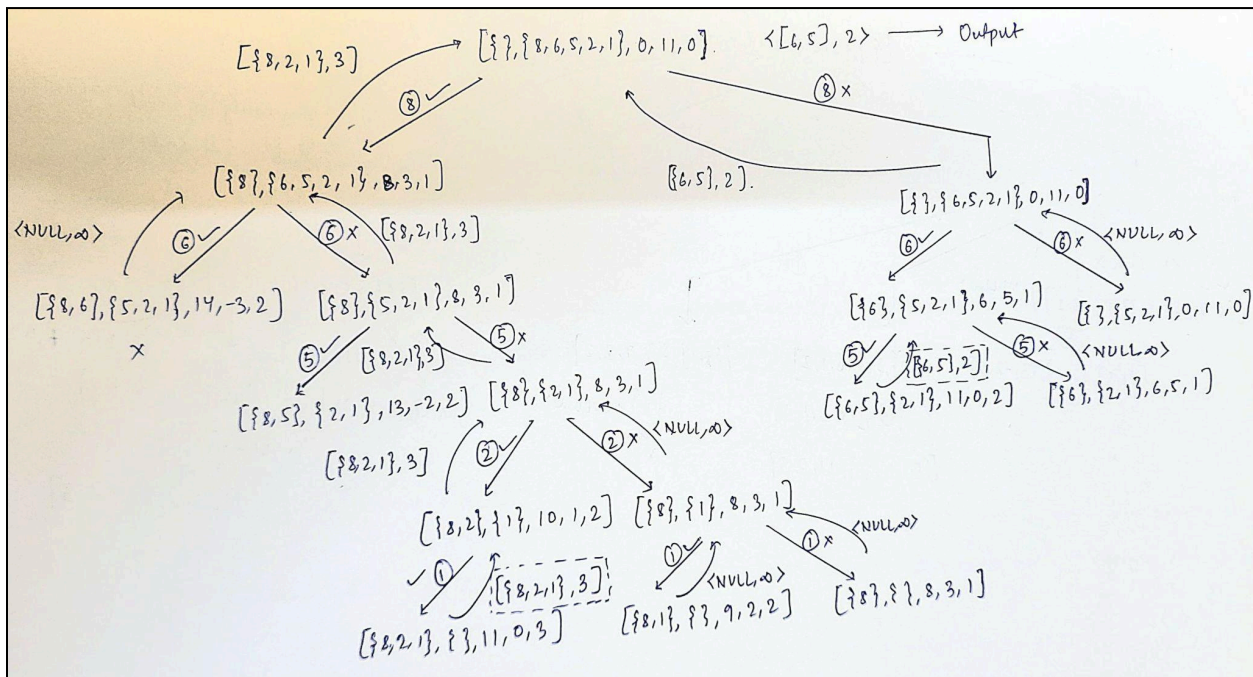 [{8,2,1},3]
[{},{8,6,5,2,1},0,11,0]. <[6,5],2> → Output
⑧ ✓
⑧ ×
[{8},{6,5,2,1},8,3,1]
[{6,5},2).
[{},{6,5,2,1},0,11,0]
<NULL,∞>
⑥ ✓
⑥ ×
[{8,2,1},3]
⑥ ✓
⑥ ×
<NULL,∞>
[{8,6},{5,2,1},14,-3,2]
×
[{8},{5,2,1},8,3,1]
[{6},{5,2,1},6,5,1]
[{},{5,2,1},0,11,0]
⑤ ✓
[{8,2,1},3]
⑤ ×
⑤ ✓
[{6,5},2]
⑤ ×
<NULL,∞>
[{8,5},{2,1},13,-2,2]
[{8},{2,1},8,3,1]
[{6,5},{2,1},11,0,2]
[{6},{2,1},6,5,1]
[{8,2,1},3]
② ✓
② ×
<NULL,∞>
[{8,2},{1},10,1,2]
[{8},{1},8,3,1]
✓ ①
[{8,2,1},3]
① ✓
<NULL,∞>
① ×
<NULL,∞>
[{8,2,1},{},11,0,3]
[{8,1},{},9,2,2]
[{8},{},8,3,1]